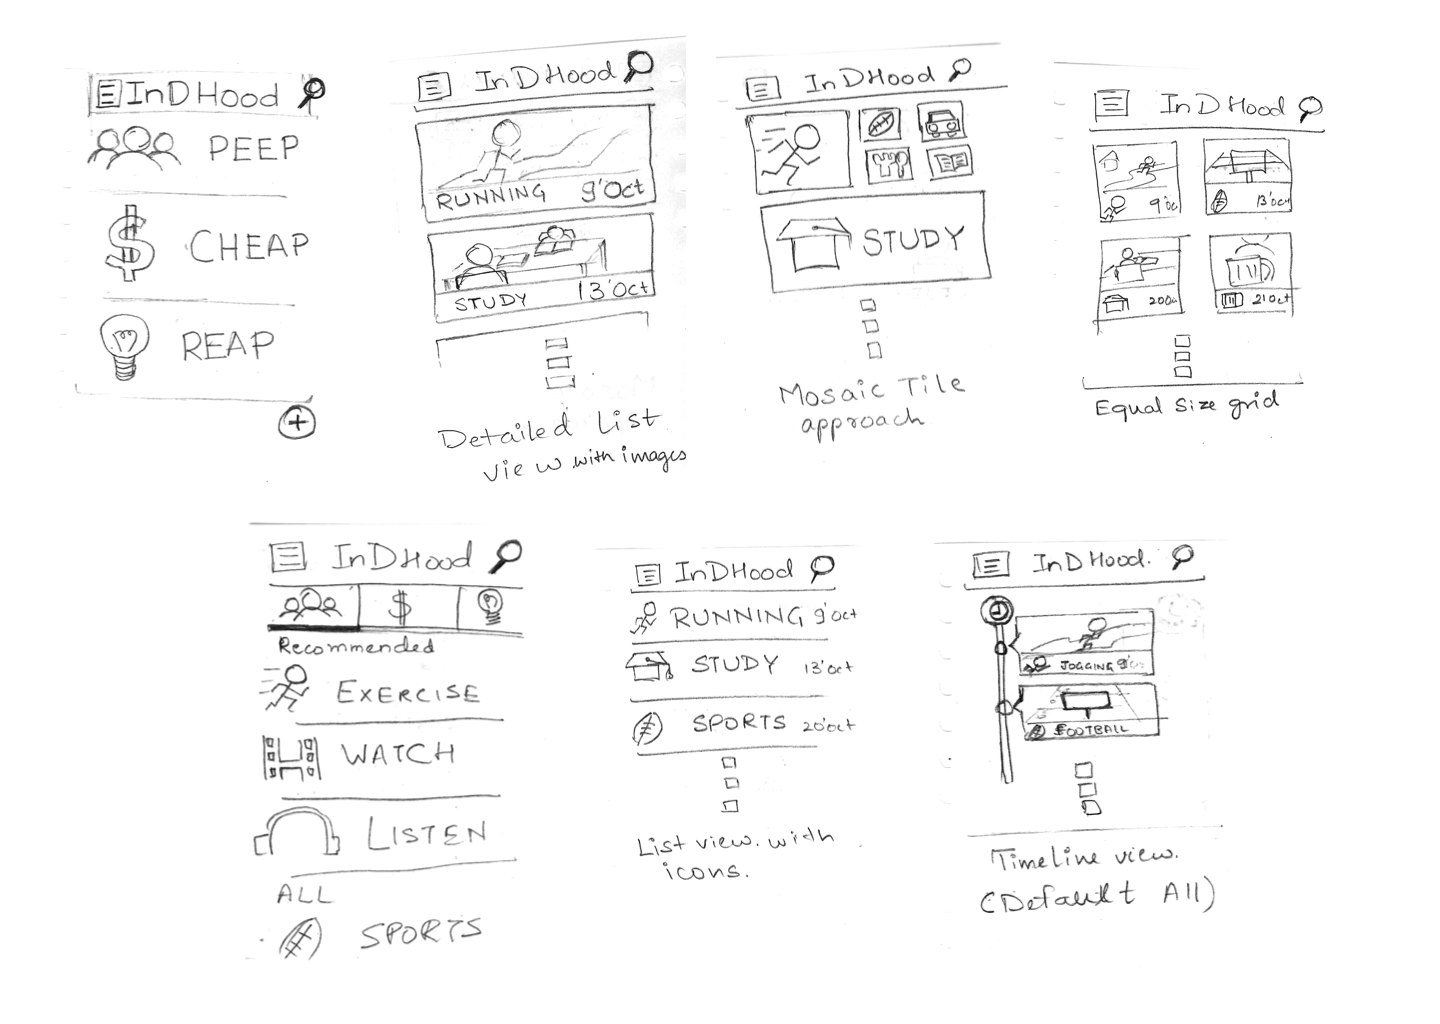 InDHood
PEEP
$ CHEAP
REAP
InDHood
RUNNING 9'Oct
STUDY 13'Oct
Detailed List
view with images
InDHood
STUDY
Mosaic Tile
approach
InDHood
9'Oct
13'Oct
20Oct
21Oct
Equal Size grid
InDHood
$
Recommended
EXERCISE
WATCH
LISTEN
ALL
SPORTS
InDHood
RUNNING 9'Oct
STUDY 13'Oct
SPORTS 20'Oct
List view. with
icons.
InDHood.
JOGGING
FOOTBALL
Timeline view.
(Default All)